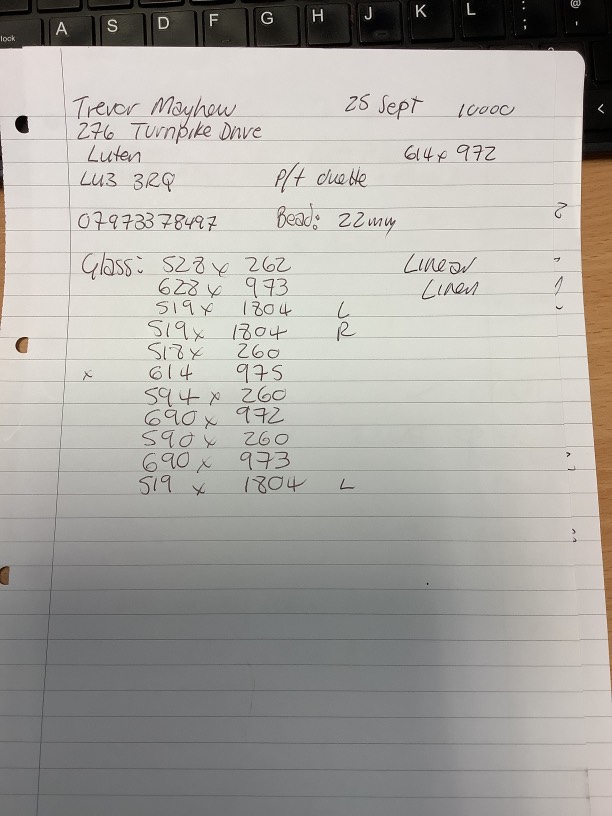 A S D F G H J K L ; :
lock
@ '
<
Trevor Mayhew 25 Sept 10000
276 Turnpike Drive
Luten 614 x 972
LU3 3RQ P/t duette
07973378497 Bead: 22mm
Glass: 528 x 262 Linear
628 x 973 Linen
519 x 1804 L
519 x 1804 R
518 x 260
x 614 975
594 x 260
690 x 972
590 x 260
690 x 973
519 x 1804 L